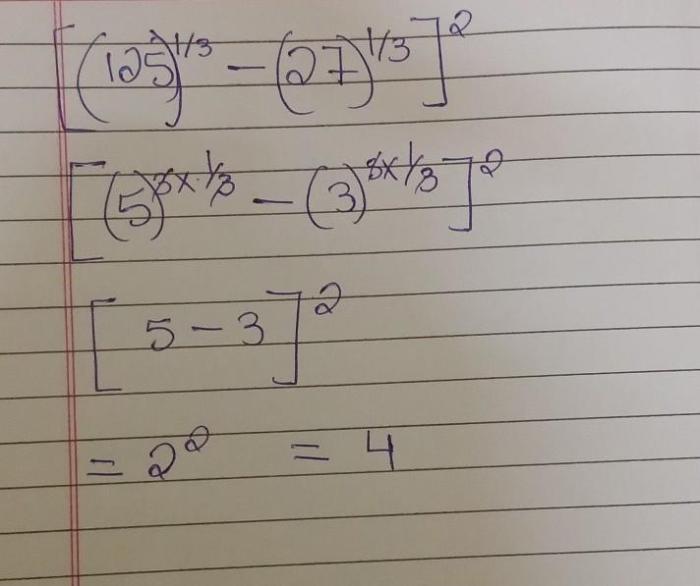 [(125)^1/3 − (27)^1/3]^2
[(5)^3×1/3 − (3)^3×1/3]^2
[5 − 3]^2
= 2^2 = 4